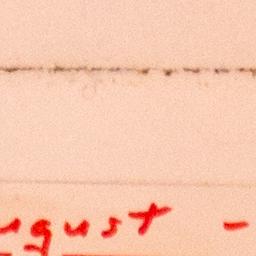 ugust -